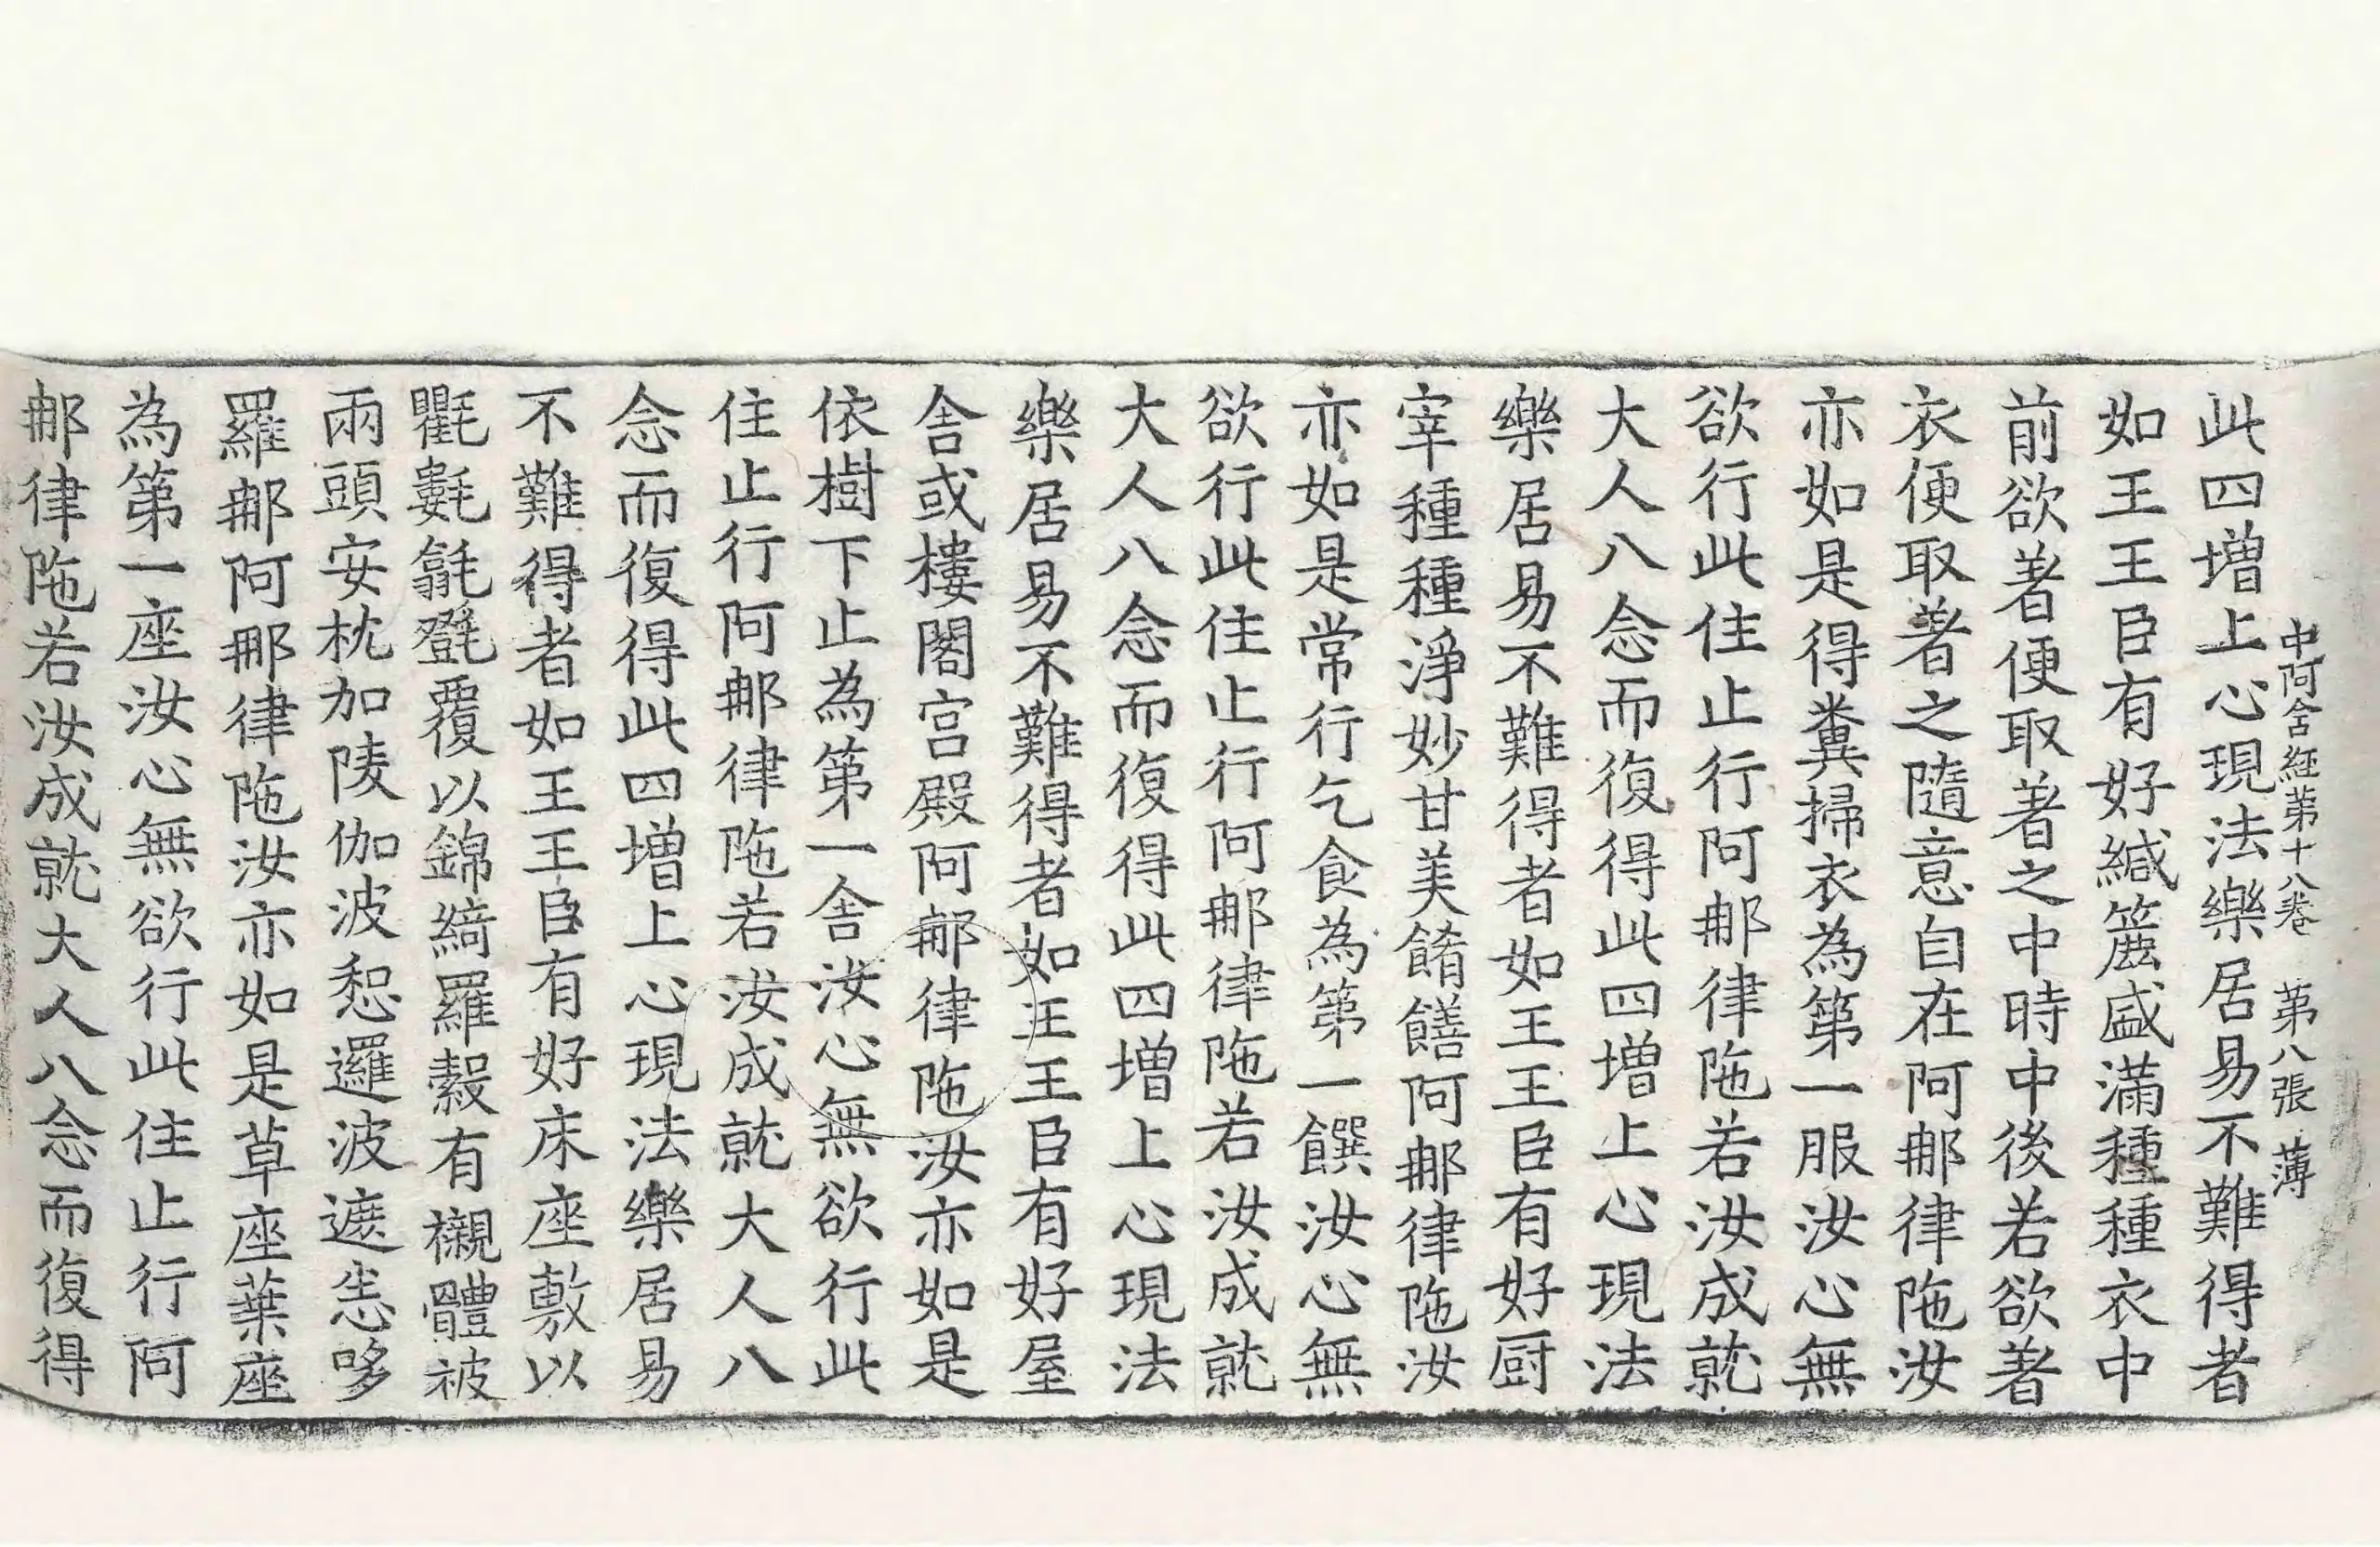 中阿含經第十八卷 第八張 薄
此四增上心現法樂居易不難得者
如王王臣有好緘簏盛滿種種衣中
前欲著者便取著之中時中後若欲著
衣便取著之隨意自在阿那律陁汝
亦如是得糞掃衣為第一服汝心無
欲行此住止行阿那律陁若汝成就
大人八念而復得此四增上心現法
樂居易不難得者如王王臣有好厨
宰種種淨妙甘美餚饍阿那律陁汝
亦如是常行乞食為第一饌汝心無
欲行此住止行阿那律陁若汝成就
大人八念而復得此四增上心現法
樂居易不難得者如王王臣有好屋
舍或樓閣宮殿阿那律陁汝亦如是
依樹下止為第一舍汝心無欲行此
住止行阿那律陁若汝成就大人八
念而復得此四增上心現法樂居易
不難得者如王王臣有好床座敷以
氍氀毾㲪覆以錦綺羅縠有襯體被
兩頭安枕加陵伽波惒邏波遮悉哆
羅那阿那律陁汝亦如是草座葉座
為第一座汝心無欲行此住止行阿
那律陁若汝成就大人八念而復得